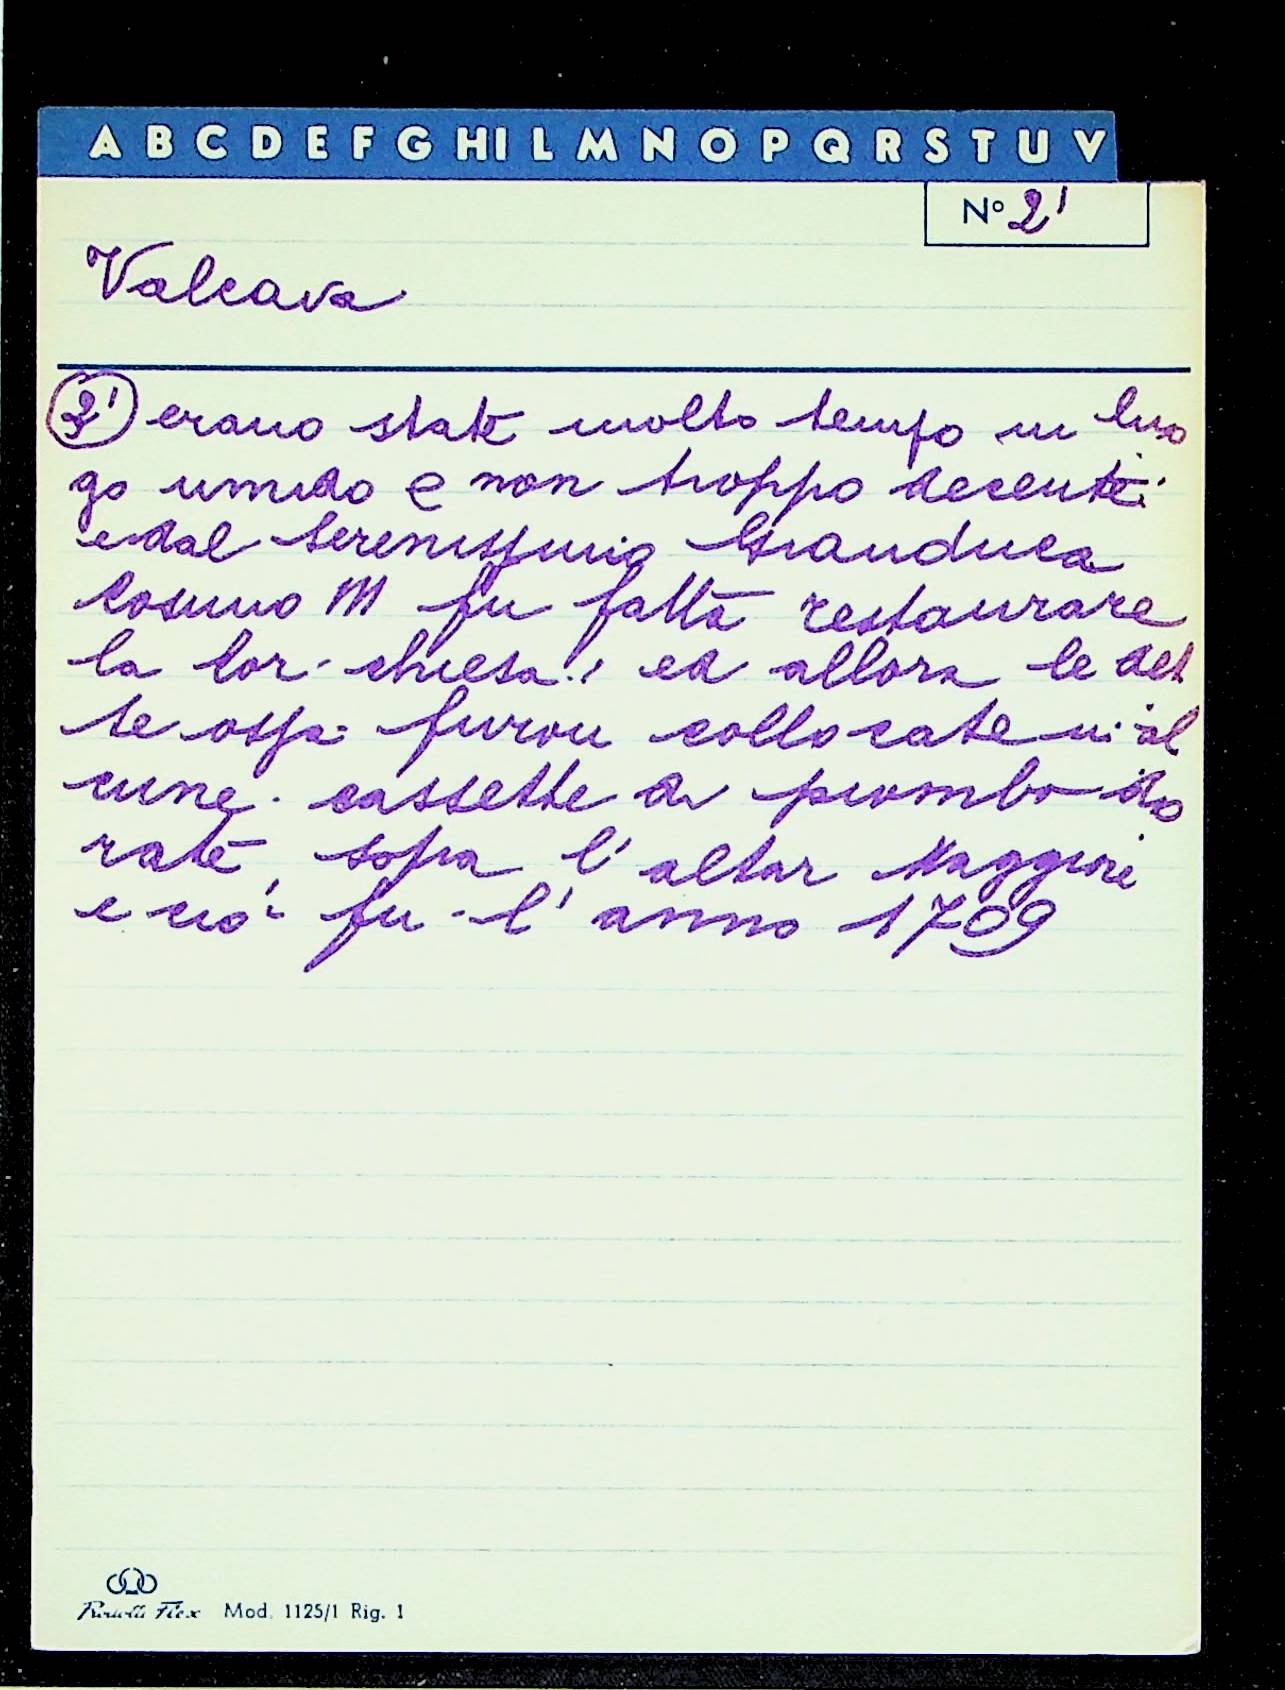 A B C D E F G H I L M N O P Q R S T U V
N° 2'
Valcava
2' erano state molto tempo in luo
go umido e non troppo decente:
e dal Serenissimo Granduca
Cosimo III fu fatta restaurare
la lor chiesa: ed allora le det
te ossa furon collocate in al
cune cassette di piombo do
rate, sopra l'altar Maggiore
e ciò fu l'anno 1709
Flex Mod. 1125/1 Rig. 1